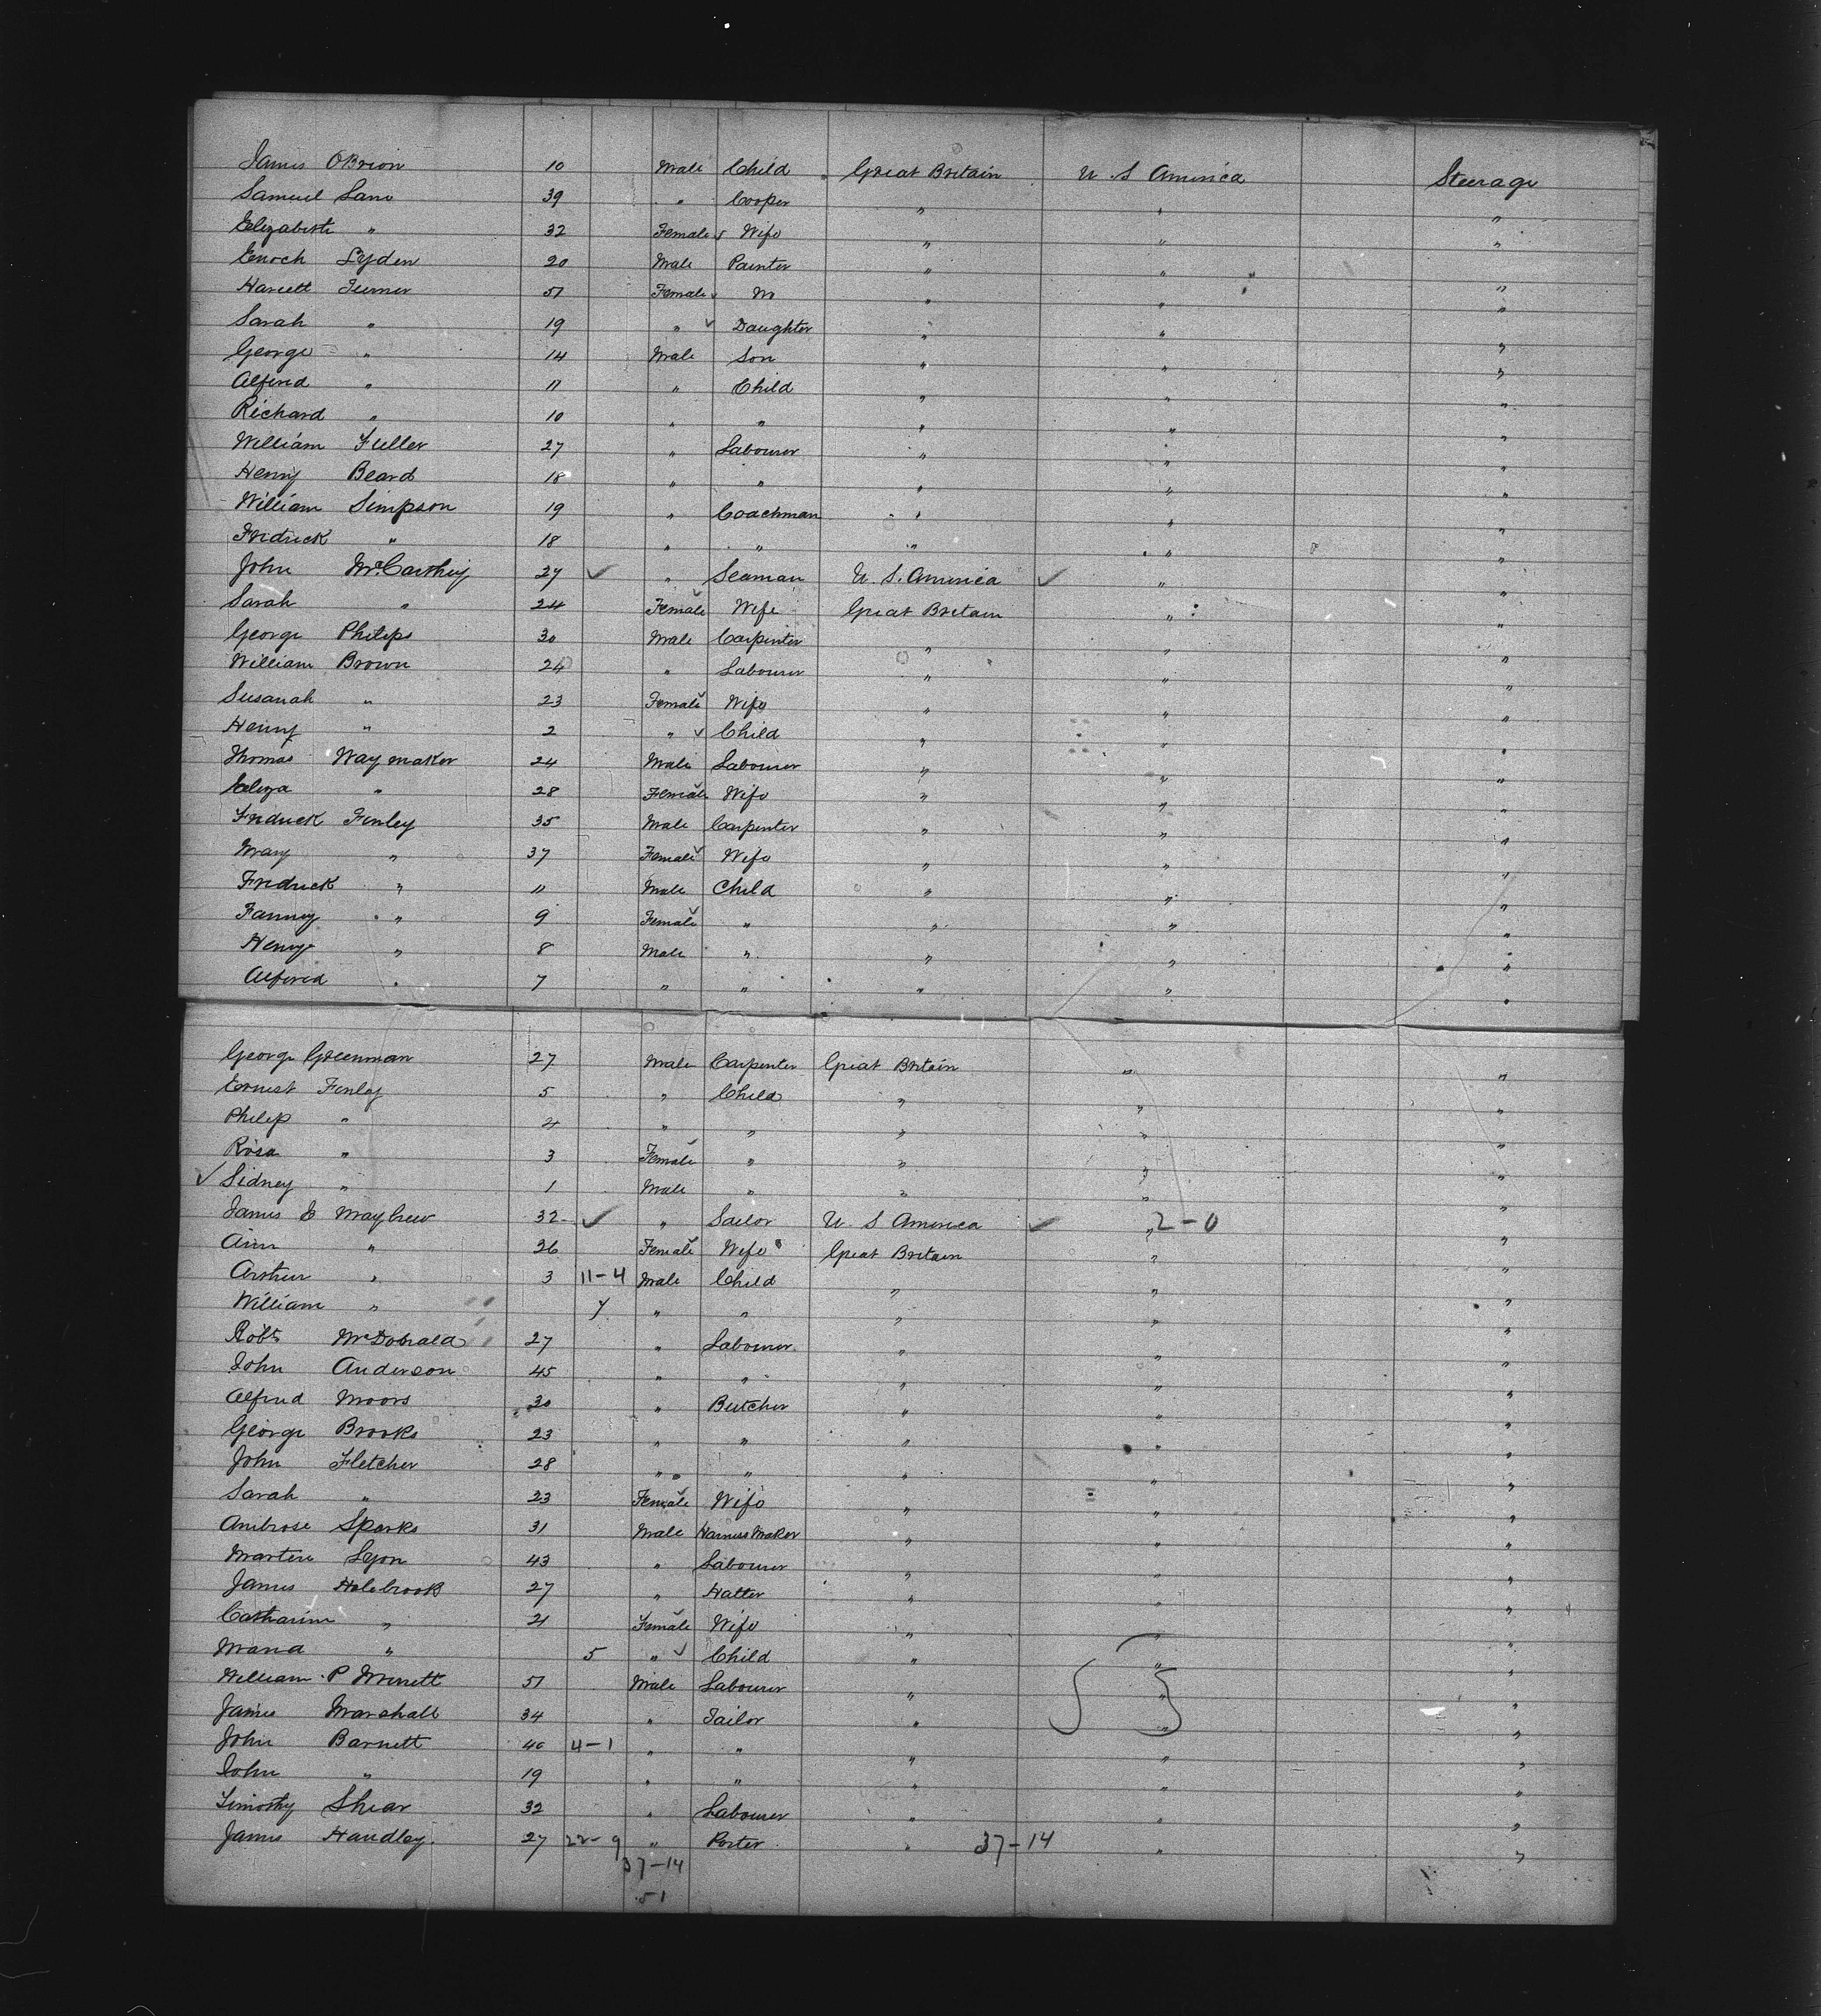 James OBrien 10 Male Child Great Britain U. S America Steerage
Samuel Lane 39 " Cooper " " "
Elizabeth " 32 Female Wife " " "
Enoch Lyden 20 Male Painter " " "
Hariett Turner 51 Female " " "
Sarah " 19 " Daughter " " "
George " 14 Male Son " " "
Alfred " 11 " Child " " "
Richard " 10 " " " " "
William Fuller 27 " Labourer " " "
Henry Beard 18 " " " " "
William Simpson 19 " Coachman " " "
Fredrick " 18 " " " " "
John McCarthy 27 " Seaman U. S. America " "
Sarah " 24 Female Wife Great Britain " "
George Philips 30 Male Carpenter " " "
William Brown 24 " Labourer " " "
Susanah " 23 Female Wife " " "
Henry " 2 " Child " " "
Thomas Waymaker 24 Male Labourer " " "
Eliza " 28 Female Wife " " "
Fredrick Finley 35 Male Carpenter " " "
Mary " 37 Female Wife " " "
Fredrick " 11 Male Child " " "
Fanney " 9 Female " " " "
Henry " 8 Male " " " "
Alfred " 7 " " " " "
George Greenman 27 Male Carpenter Great Britain " "
Ernest Finley 5 " Child " " "
Philip " 4 " " " " "
Rosa " 3 Female " " " "
Sidney " 1 Male " " " "
James E Mayhew 32 " Sailor U S America " 2-0 "
Ann " 26 Female Wife Great Britain " "
Arthur " 3 11-4 Male Child " " "
William " 7 " " " " "
Robt McDonald 27 " Labourer " " "
John Anderson 45 " " " " "
Alfred Moors 30 " Butcher " " "
George Brooks 23 " " " " "
John Fletcher 28 " " " " "
Sarah " 23 Female Wife " " "
Ambrose Sparks 31 Male Harness Maker " " "
Martin Lyon 43 " Labourer " " "
James Holebrook 27 " Hatter " " "
Catharine " 21 Female Wife " " "
" 5 " Child " " "
William P 51 Male Labourer " " "
James Marshall 34 " Tailor " " "
John Barnett 40 4-1 " " " " "
John " 19 " " " " "
Timothy Shear 32 " Labourer " " "
James Handley. 27 22-9 " Porter " 37-14 " "
37-14
51